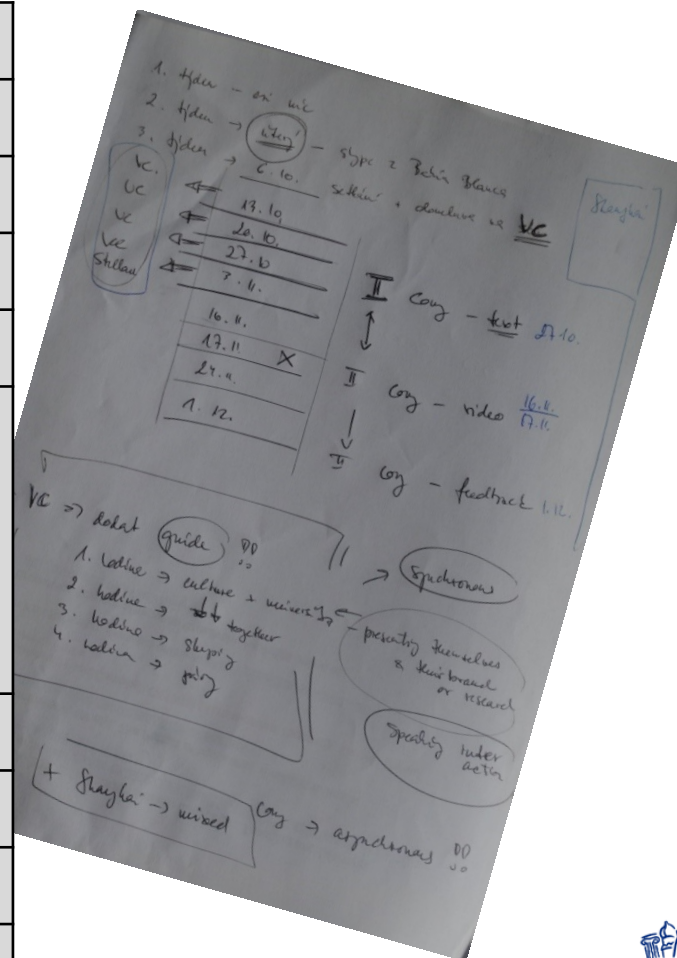 1. týden – ani nic
2. týden → úterý – skype z Bahia Blanca
3. týden → 6.10. setkání + domluva na VC
Shanghai
VC. ⇐ 13.10.
VC ⇐ 20.10.
VC ⇐ 27.10
VC ⇐ 3.11.
16.11.
17.11 X
24.11.
1.12.
II Cony – text 27.10.
II Cony – video 16.11. 17.11.
II Cony – feedback 1.12.
VC => dodat guide !!
1. hodina → culture + university
2. hodina → together
3. hodina → skupiny
4. hodina → páry
→ Synchronous
– presenting themselves
& their brand
or research
Speaking inter
action
+ Shanghai → mixed
Cony → asynchronous !!